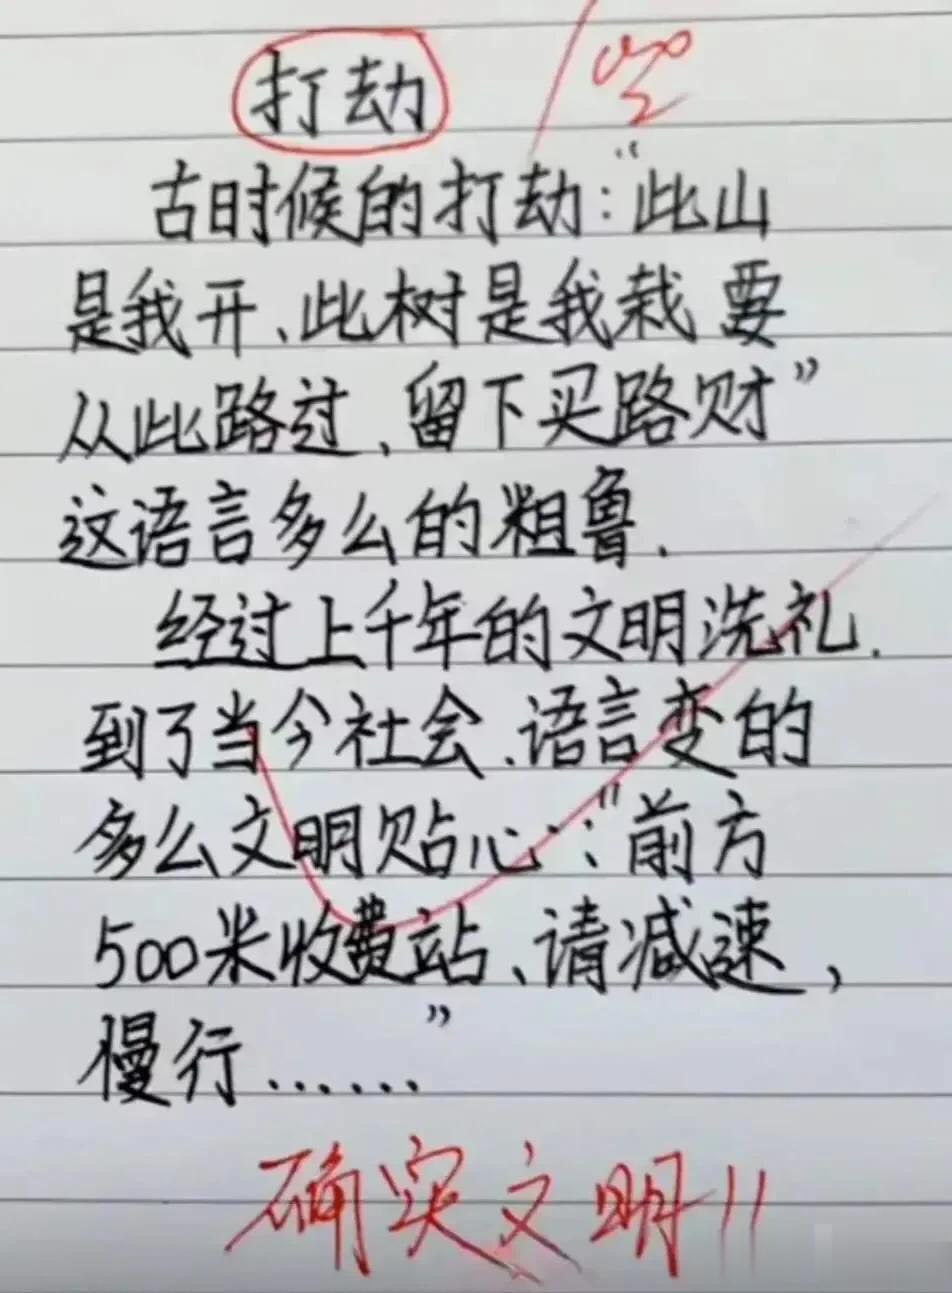 打劫
古时候的打劫:“此山
是我开、此树是我栽 要
从此路过、留下买路财”
这语言多么的粗鲁.
经过上千年的文明洗礼.
到了当今社会.语言变的
多么文明贴心::“前方
500米收费站、请减速,
慢行......”
确实文明!!